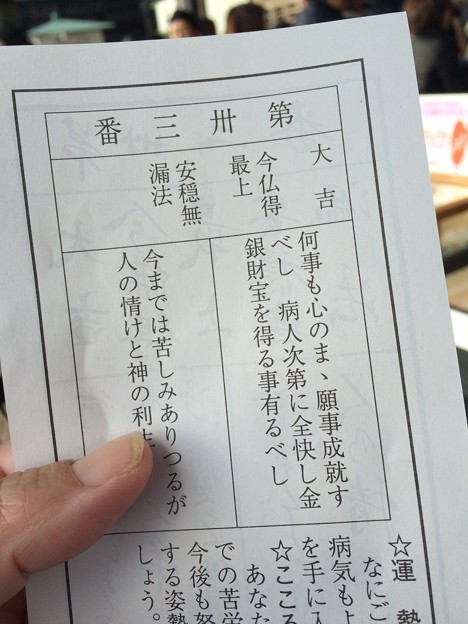 第卅三番
大吉
今仏得
最上
安穏無
漏法
何事も心のまゝ願事成就す
べし　病人次第に全快し金
銀財宝を得る事有るべし
今までは苦しみありつるが
人の情けと神の利
☆運　勢
なにご
病気もよ
を手に入
☆こころ
あなた
での苦
今後も努
する姿勢
しょう。